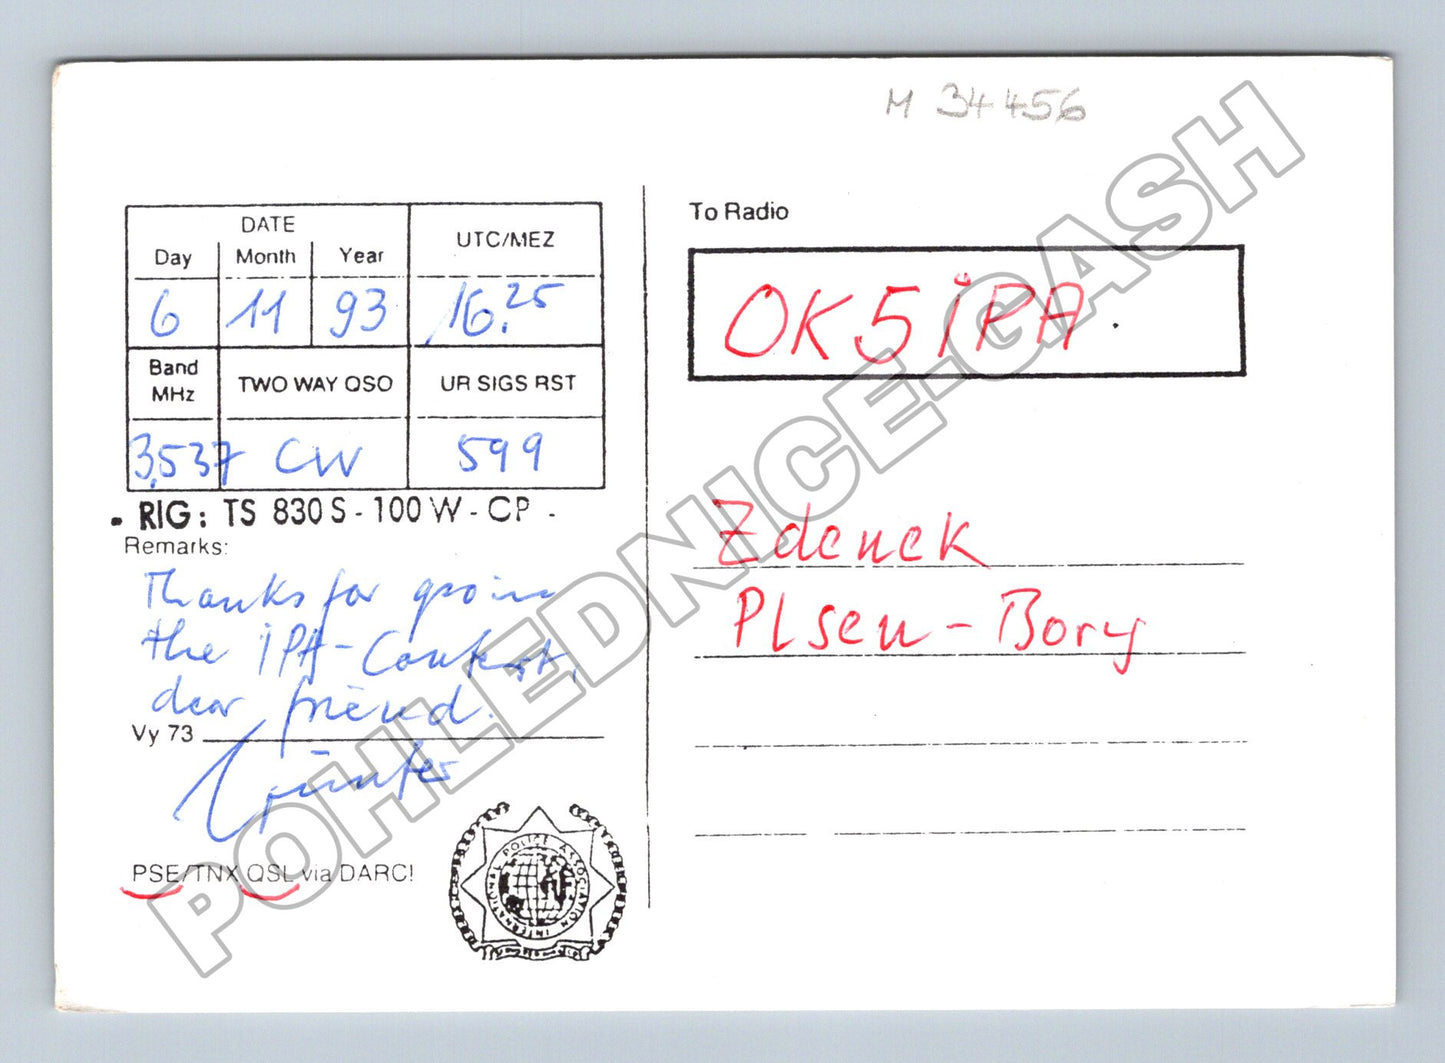 M 34456
DATE
Day Month Year
UTC/MEZ
6 11 93
16.25
Band MHz
TWO WAY QSO
UR SIGS RST
3,537
CW
599
. RIG: TS 830 S - 100 W - CP -
Remarks:
Thanks for qso in
the IPA-Contest,
dear friend.
Vy 73
Günter
PSE/TNX QSL via DARC!
INTERNATIONAL POLICE ASSOCIATION
To Radio
OK5iPA
Zdenek
Plsen-Bory
POHLEDNICE-GASH